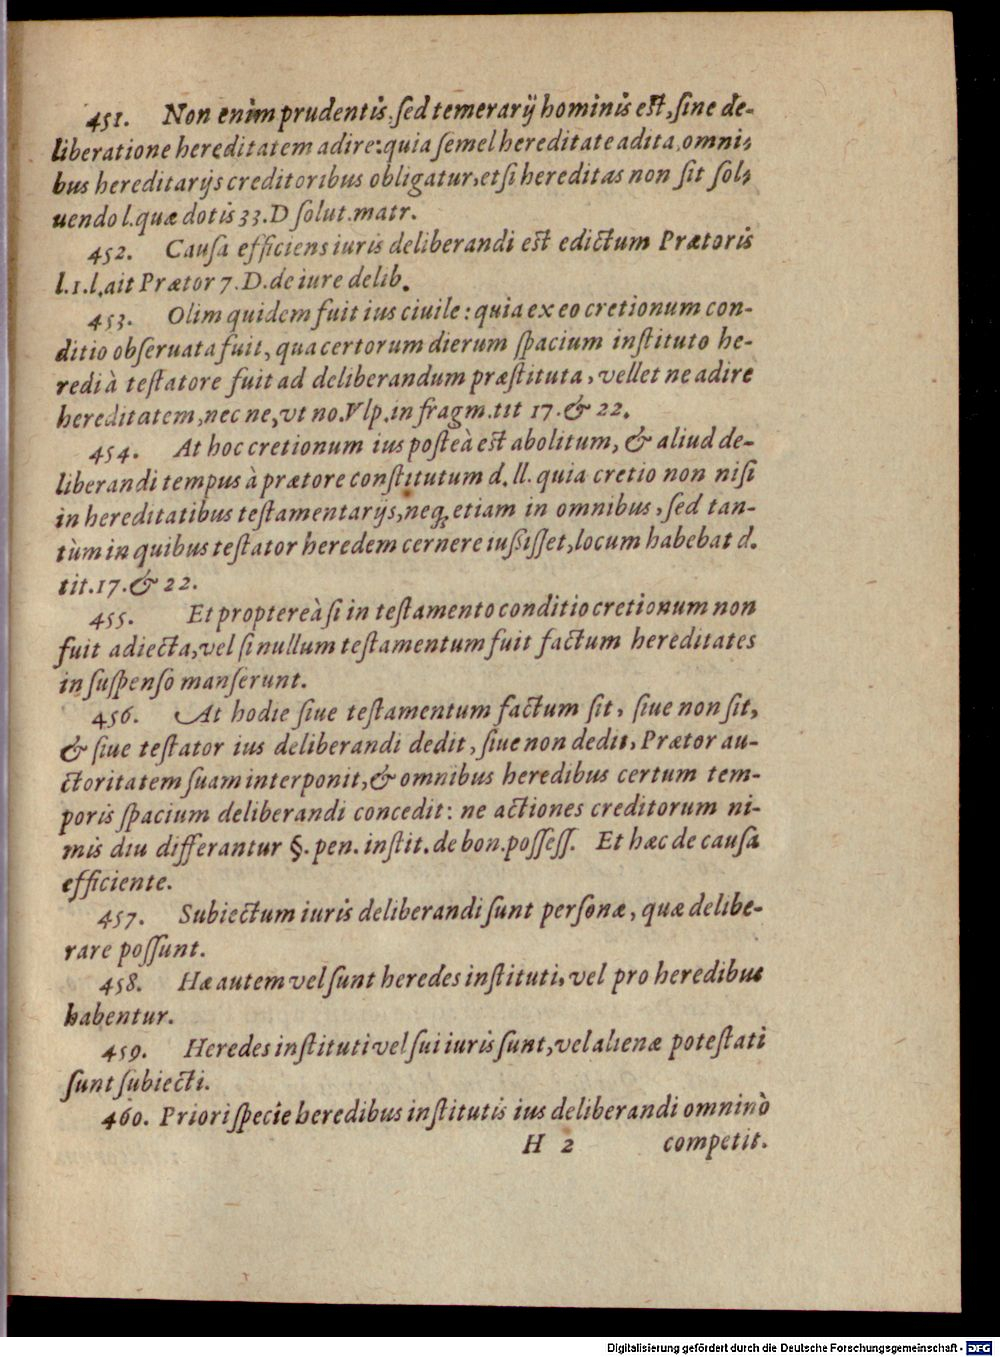 451. Non enim prudentis, sed temerarij hominis est, sine de-
liberatione hereditatem adire: quia semel hereditate adita, omni-
bus hereditarijs creditoribus obligatur, etsi hereditas non sit sol-
uendo l. quæ dotis 33. D solut. matr.
452. Causa efficiens iuris deliberandi est edictum Prætoris
l. 1. l. ait Prætor 7. D. de iure delib.
453. Olim quidem fuit ius ciuile: quia ex eo cretionum con-
ditio obseruata fuit, qua certorum dierum spacium instituto he-
redi à testatore fuit ad deliberandum præstituta, vellet ne adire
hereditatem, nec ne, vt no. Vlp. in fragm. tit 17. & 22.
454. At hoc cretionum ius posteà est abolitum, & aliud de-
liberandi tempus à prætore constitutum d. ll. quia cretio non nisi
in hereditatibus testamentarijs, neq; etiam in omnibus, sed tan-
tùm in quibus testator heredem cernere iussisset, locum habebat d.
tit. 17. & 22.
455. Et proptereà si in testamento conditio cretionum non
fuit adiecta, vel si nullum testamentum fuit factum hereditates
in suspenso manserunt.
456. At hodie siue testamentum factum sit, siue non sit,
& siue testator ius deliberandi dedit, siue non dedit, Prætor au-
ctoritatem suam interponit, & omnibus heredibus certum tem-
poris spacium deliberandi concedit: ne actiones creditorum ni-
mis diu differantur §. pen. instit. de bon. possess. Et hæc de causa
efficiente.
457. Subiectum iuris deliberandi sunt personæ, quæ delibe-
rare possunt.
458. Hæ autem vel sunt heredes instituti, vel pro heredibus
habentur.
459. Heredes instituti vel sui iuris sunt, vel alienæ potestati
sunt subiecti.
460. Priori specie heredibus institutis ius deliberandi omninò
H 2 competit.
Digitalisierung gefördert durch die Deutsche Forschungsgemeinschaft - DFG